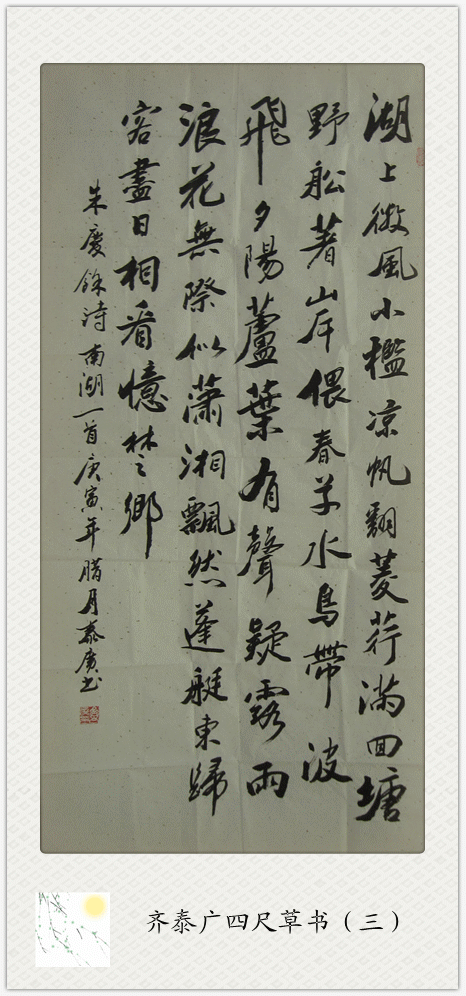 湖上微風小檻凉帆翻菱荇满回塘
野舩著岸偎春草水鳥帶波
飛夕陽蘆葉有聲疑露雨
浪花無際似瀟湘飄然蓬艇東歸
客盡日相看憶楚鄉
朱慶餘詩南湖一首庚寅年腊月泰廣书
齐泰广四尺草书（三）